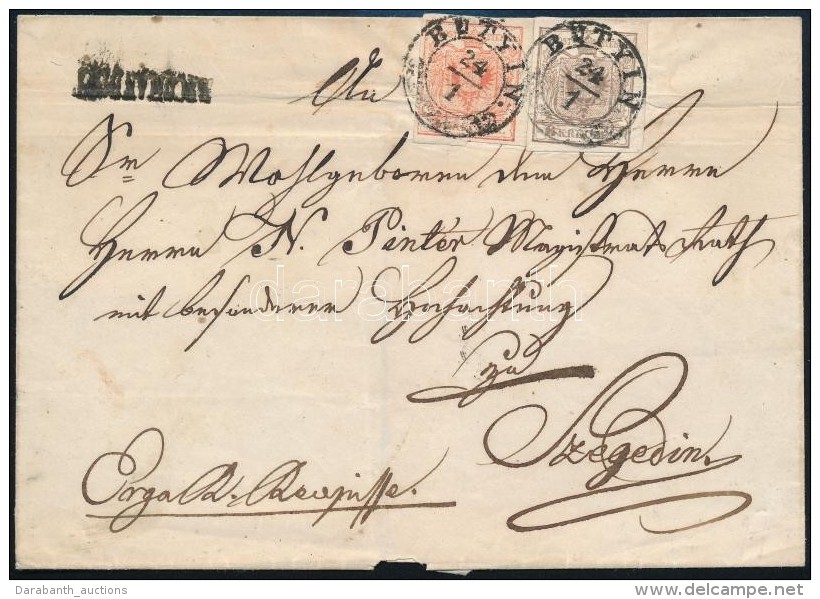 An
BUTYIN.
24/7
BUTYIN
24/7
Sr Wohlgeboren dem Herrn
Herrn N. Pintér Magistrats Rath
mit besonderer Hochachtung
darabanth
zu
Szegedin.
Erga R: Recepisse.
Darabanth_auctions
delcampe.net